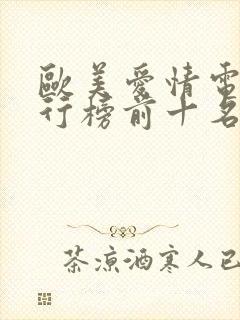 歐美愛情電
行榜前十名
茶涼酒寒人已